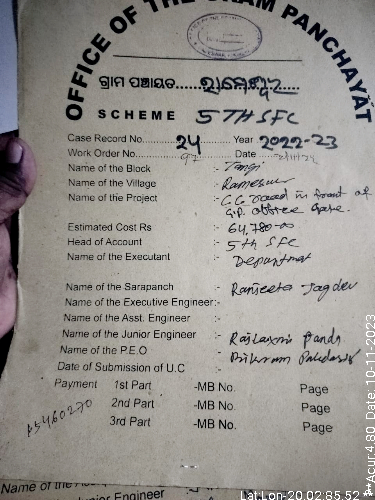 OFFICE OF THE GRAM PANCHAYAT
ଗ୍ରାମ ପଞ୍ଚାୟତ......ରାମେଶ୍ୱର
SCHEME 5TH SFC
Case Record No. 24 Year 2022-23
Work Order No. 97 Date
Name of the Block :- Tangi
Name of the Village :- Rameswar
Name of the Project :- C.C Road in front of
G.P. office
Estimated Cost Rs :- 64,780-00
Head of Account :- 5th SFC
Name of the Executant :- Department
Name of the Sarapanch :- Ranjeeta Jagdev
Name of the Executive Engineer:-
Name of the Asst. Engineer :-
Name of the Junior Engineer :- Rajlaxmi Panda
Name of the P.E.O :- Bikram
Date of Submission of U.C :-
Payment 1st Part -MB No. Page
2nd Part -MB No. Page
3rd Part -MB No. Page
A5460270
Name of the
Junior Engineer
Lat Lon-20.02:85.52
**Acur:4.80 Date: 10-11-2023